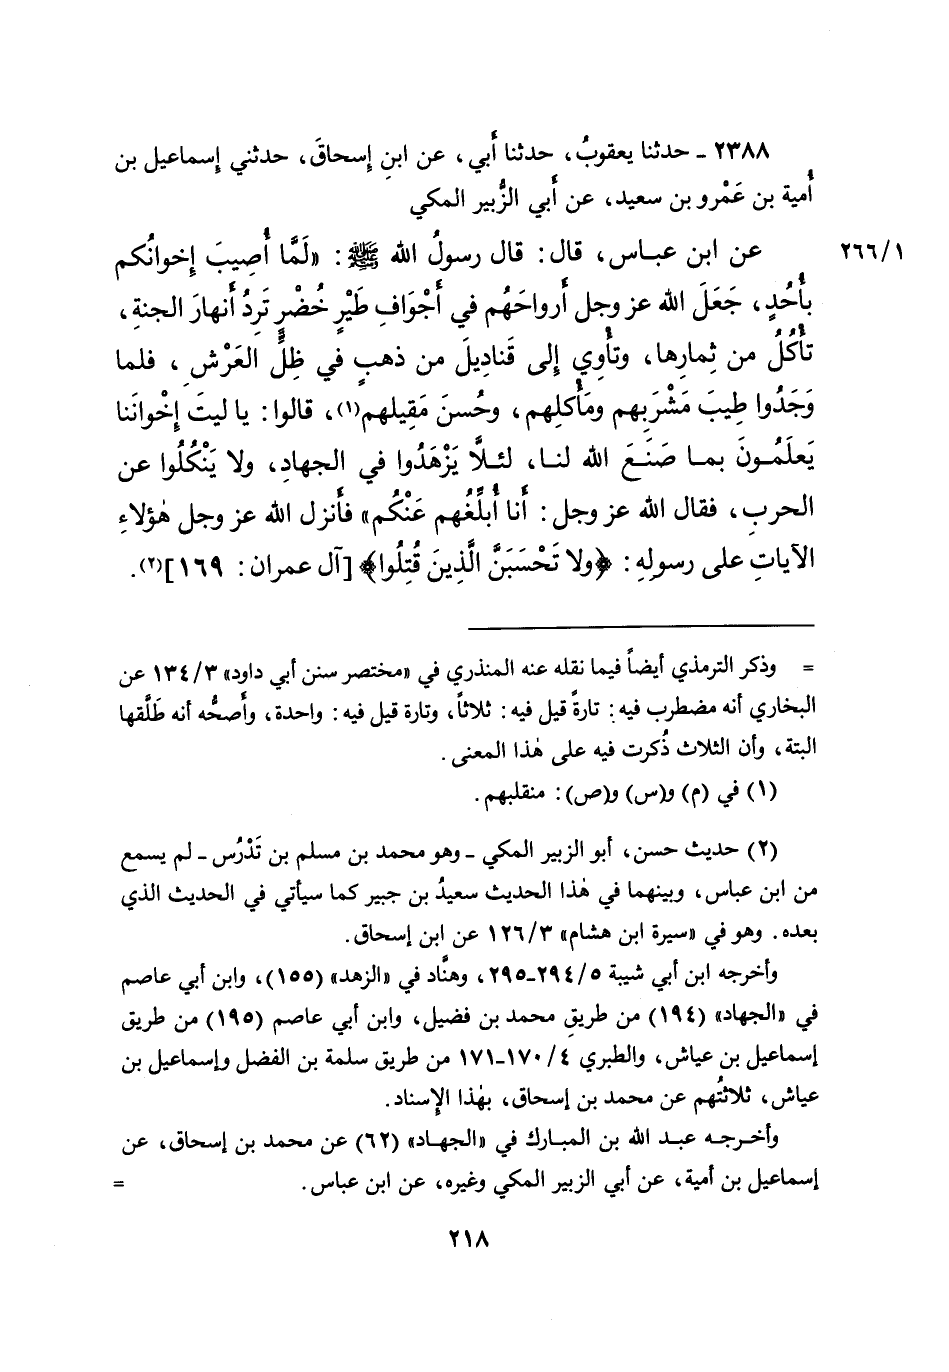 ٢٣٨٨ ـ حدثنا يعقوبُ، حدثنا أَبي، عن ابنِ إِسحاقَ، حدثني إِسماعيل بن
أُمية بن عَمْرو بن سعيد، عن أَبي الزُّبير المكي
عن ابن عبـاس، قال: قال رسولُ الله ﷺ: «لَمَّا أُصِيبَ إِخوانُكم ٢٦٦/١
بأُحُدٍ، جَعَلَ الله عز وجل أَرواحَهُم في أَجْوَافِ طَيْرٍ خُضْرٍ تَرِدُ أَنهارَ الجنةِ،
تأْكُلُ من ثِمارِها، وتأْوِي إِلى قَناديلَ من ذهبٍ في ظِلِّ العَرْشِ، فلما
وَجَدُوا طِيبَ مَشْرَبِهم ومَأْكَلِهم، وحُسنَ مَقِيلهم(١)، قالوا: يا ليتَ إِخْوانَنا
يَعلَمُـونَ بمـا صَنَـعَ الله لنـا، لئـلَّا يَزْهَدُوا في الجهادِ، ولا يَنْكُلُوا عن
الحربِ، فقال الله عز وجل: أَنا أُبلِّغُهم عَنْكُم» فأَنزل الله عز وجل هٰؤلاءِ
الآياتِ على رسولِهِ: ﴿ولا تَحْسَبَنَّ الَّذِينَ قُتِلُوا﴾ [آل عمران: ١٦٩](٢).
= وذكر الترمذي أيضاً فيما نقله عنه المنذري في «مختصر سنن أبي داود» ١٣٤/٣ عن
البخاري أنه مضطرب فيه: تارةً قيل فيه: ثلاثاً، وتارة قيل فيه: واحدة، وأَصحُّه أنه طَلَّقها
البتة، وأن الثلاث ذُكرت فيه على هٰذا المعنى.
(١) في (م) و(س) و(ص): منقلبهم.
(٢) حديث حسن، أبو الزبير المكي ـ وهو محمد بن مسلم بن تَدْرُس ـ لم يسمع
من ابن عباس، وبينهما في هٰذا الحديث سعيدُ بن جبير كما سيأتي في الحديث الذي
بعده. وهو في «سيرة ابن هشام» ١٢٦/٣ عن ابن إسحاق.
وأخرجه ابن أبي شيبة ٢٩٤/٥-٢٩٥، وهنَّاد في «الزهد» (١٥٥)، وابن أبي عاصم
في «الجهاد» (١٩٤) من طريقِ محمد بن فضيل، وابن أبي عاصم (١٩٥) من طريق
إسماعيل بن عياش، والطبري ١٧٠/٤-١٧١ من طريق سلمة بن الفضل وإسماعيل بن
عياش، ثلاثتُهم عن محمد بن إسحاق، بهٰذا الإِسناد.
وأخـرجـه عبـد الله بن المبـارك في «الجهـاد» (٦٢) عن محمد بن إسحاق، عن
إسماعيل بن أمية، عن أبي الزبير المكي وغيره، عن ابن عباس. =
٢١٨